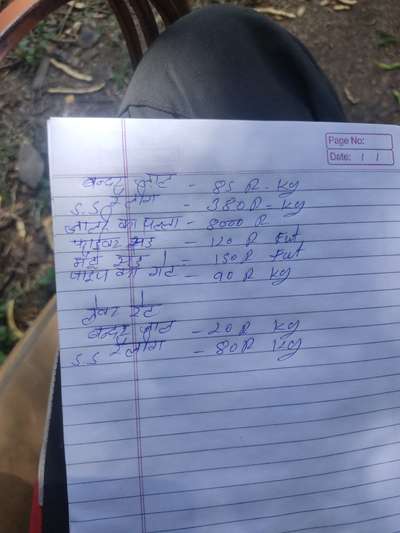 Page No:
Date: / /
चन्दर गेट - 85 R. Kg
S.S रेलींग - 380 R - Kg
जाली का पल्ला - 8000 R
फाईबर सेड - 120 R Fut
सेड - 150 R Fut
पाईप का गेट - 90 R Kg
लेबर रेट
चन्दर गेट - 20 R Kg
S.S रेलींग - 80 R Kg